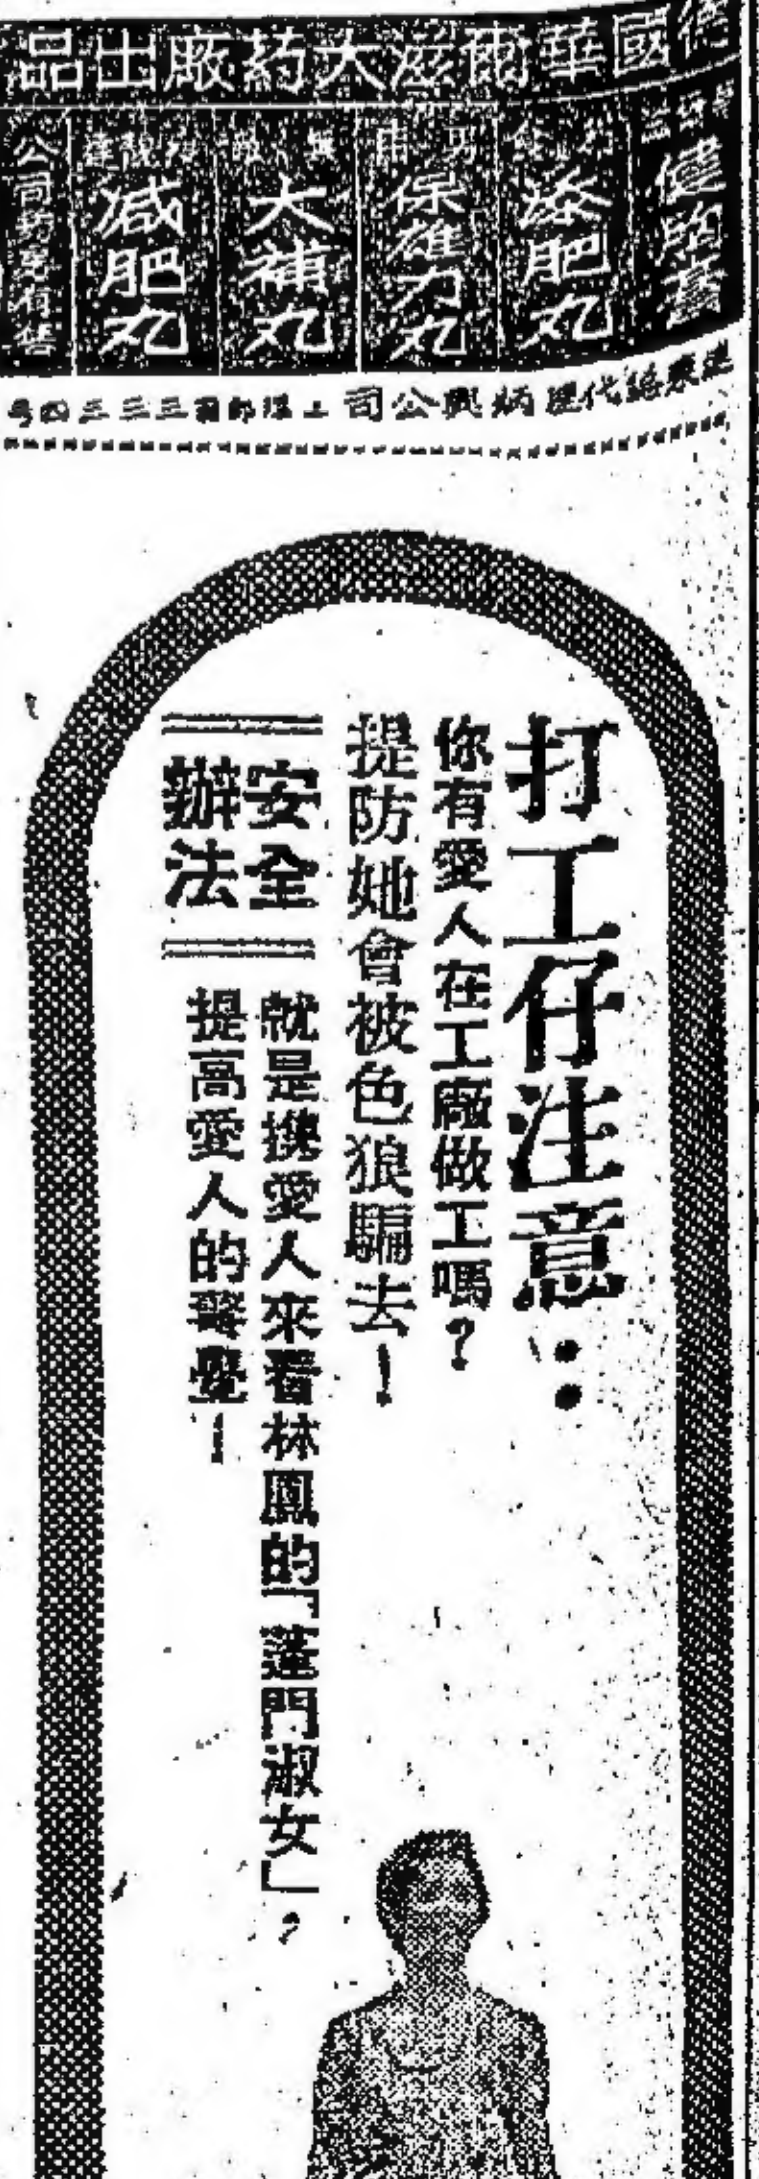 德國華爾滋大药廠出品
健胸
添肥丸
保雄力丸
大補丸
減肥丸
公司均有售
遠東總代理炳興公司 郵箱三三三四号
打工仔注意：
你有愛人在工廠做工嗎？
提防她會被色狼騙去！
安全
辦法
就是携愛人來看林鳳的「蓬門淑女」？
提高愛人的警覺！